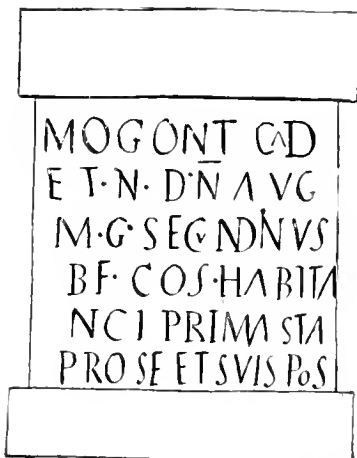 MOGONT CAD
ET·N·DN̄AVG
M·G·SECVNDINVS
BF·COS·HABITA
NCI PRIMA STA
PRO SE ET SVIS POS